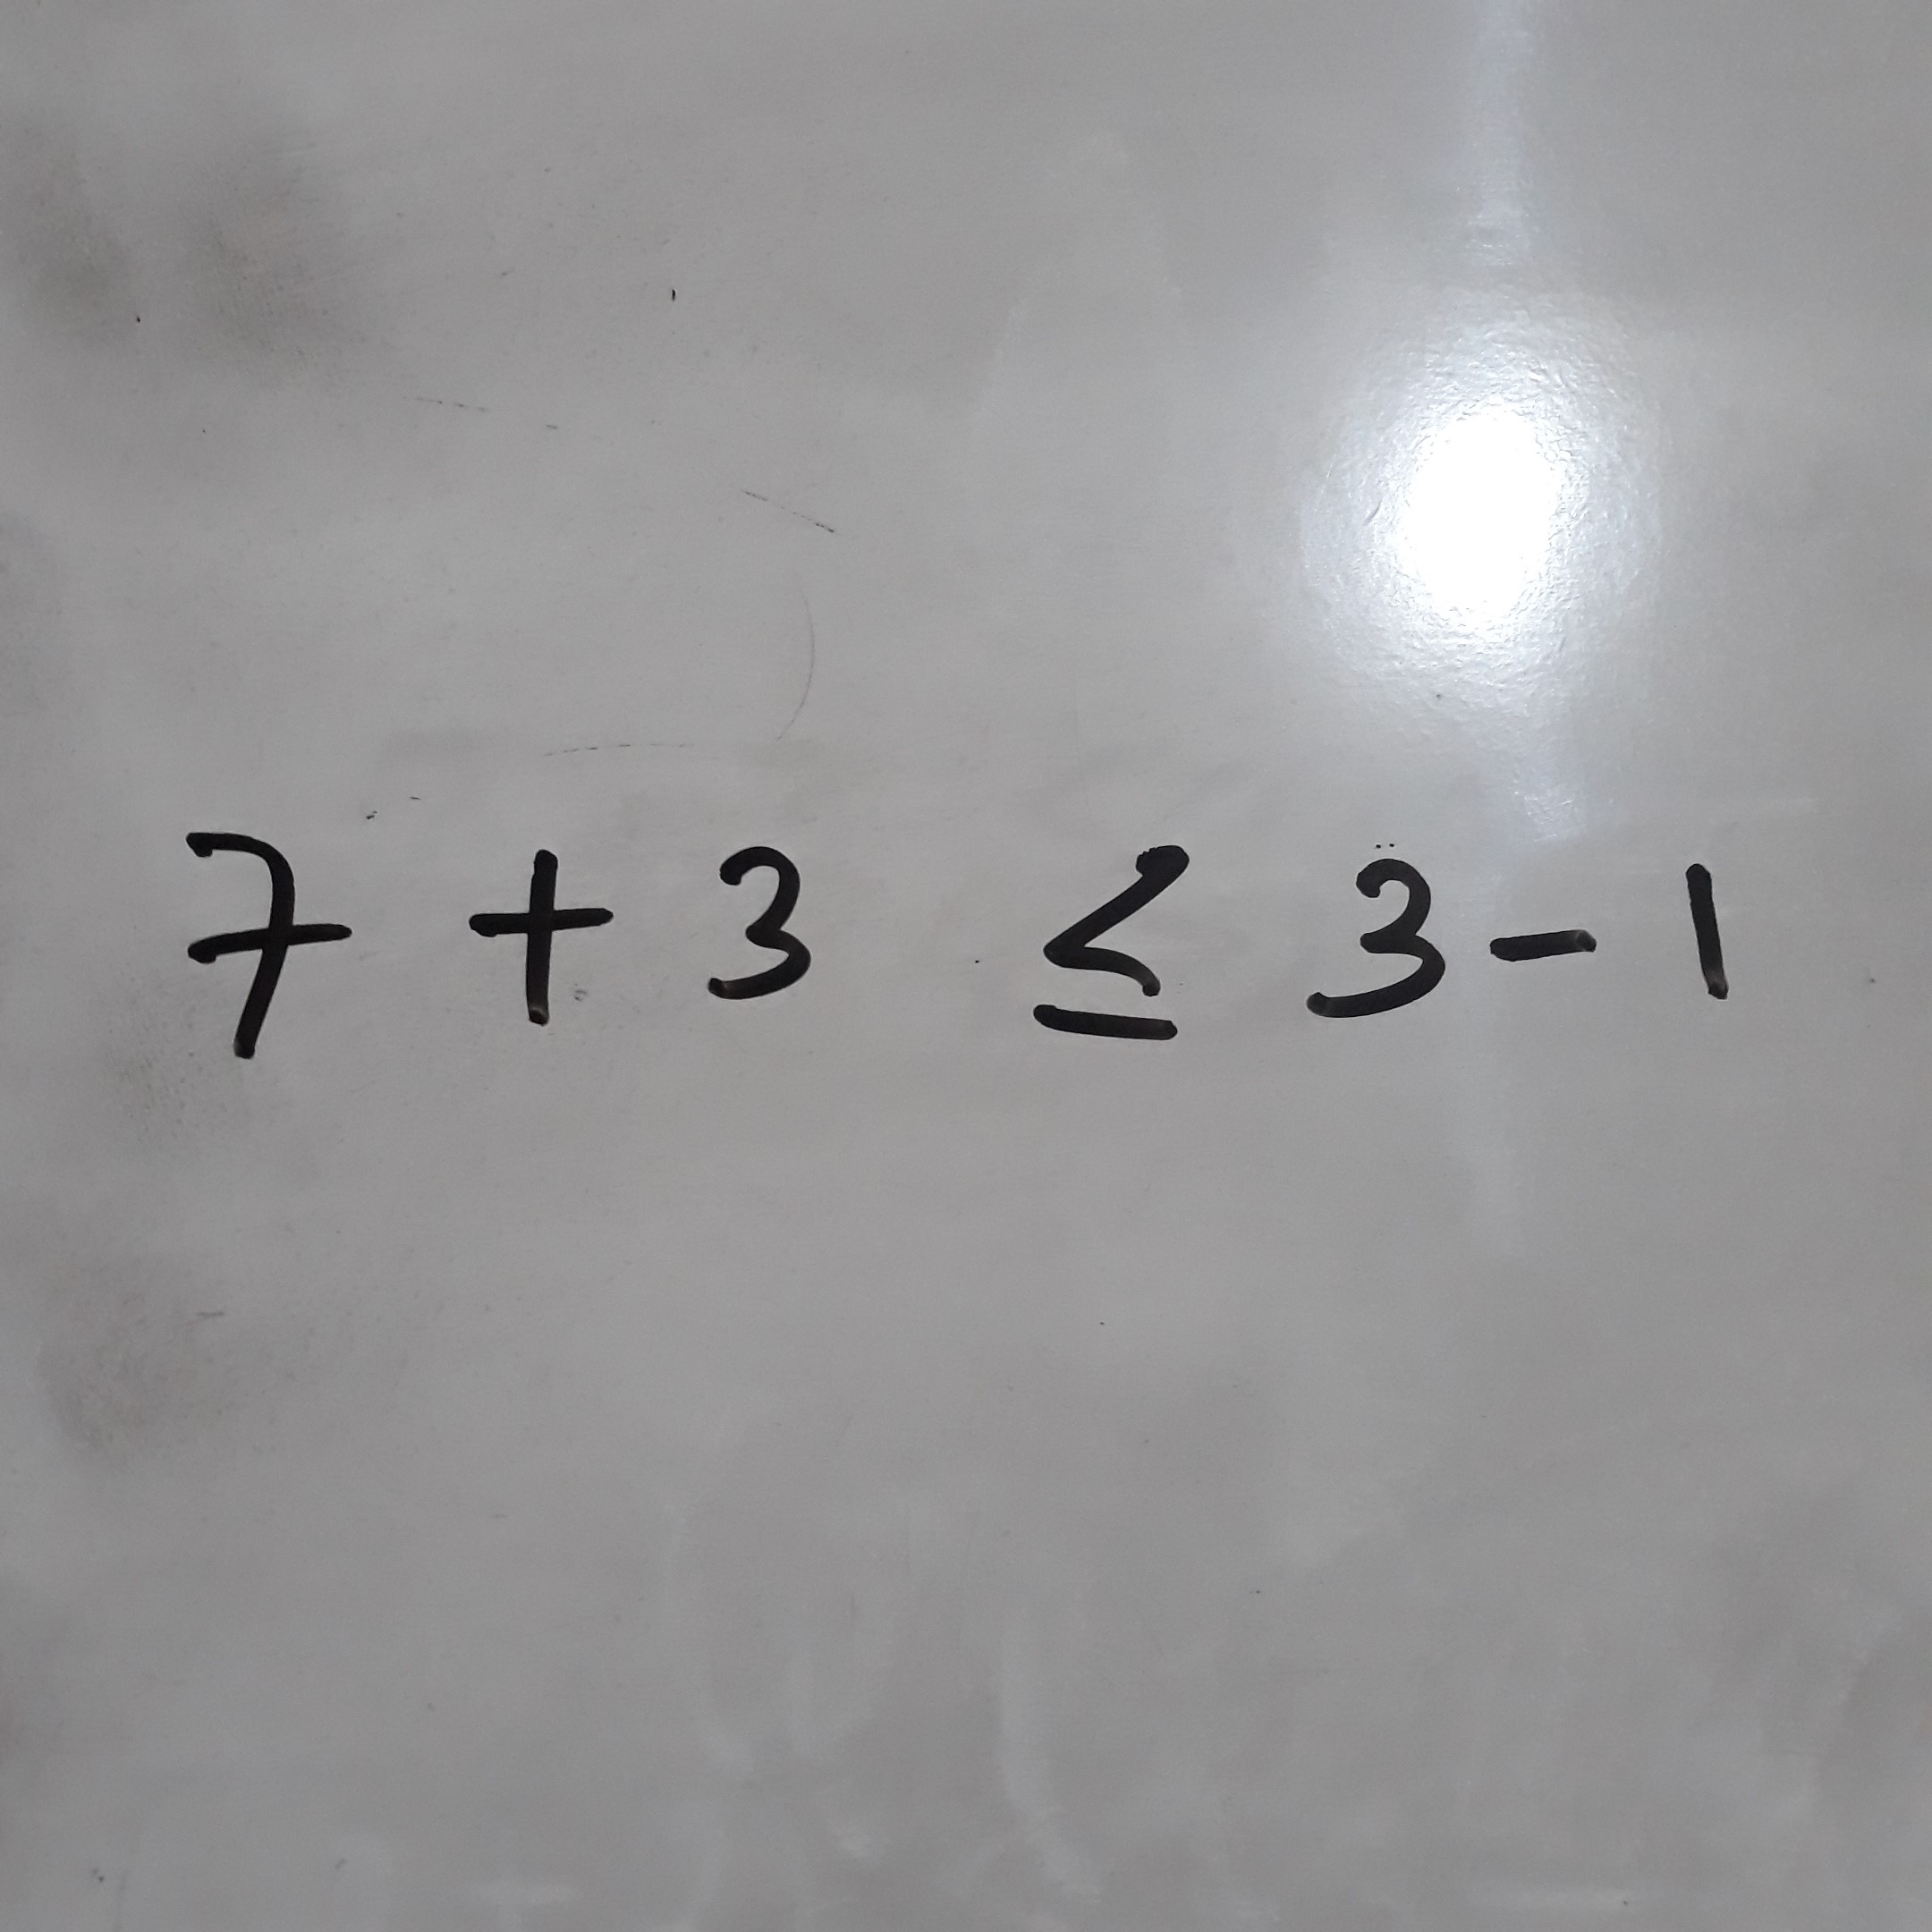 7 + 3 ≤ 3 - 1